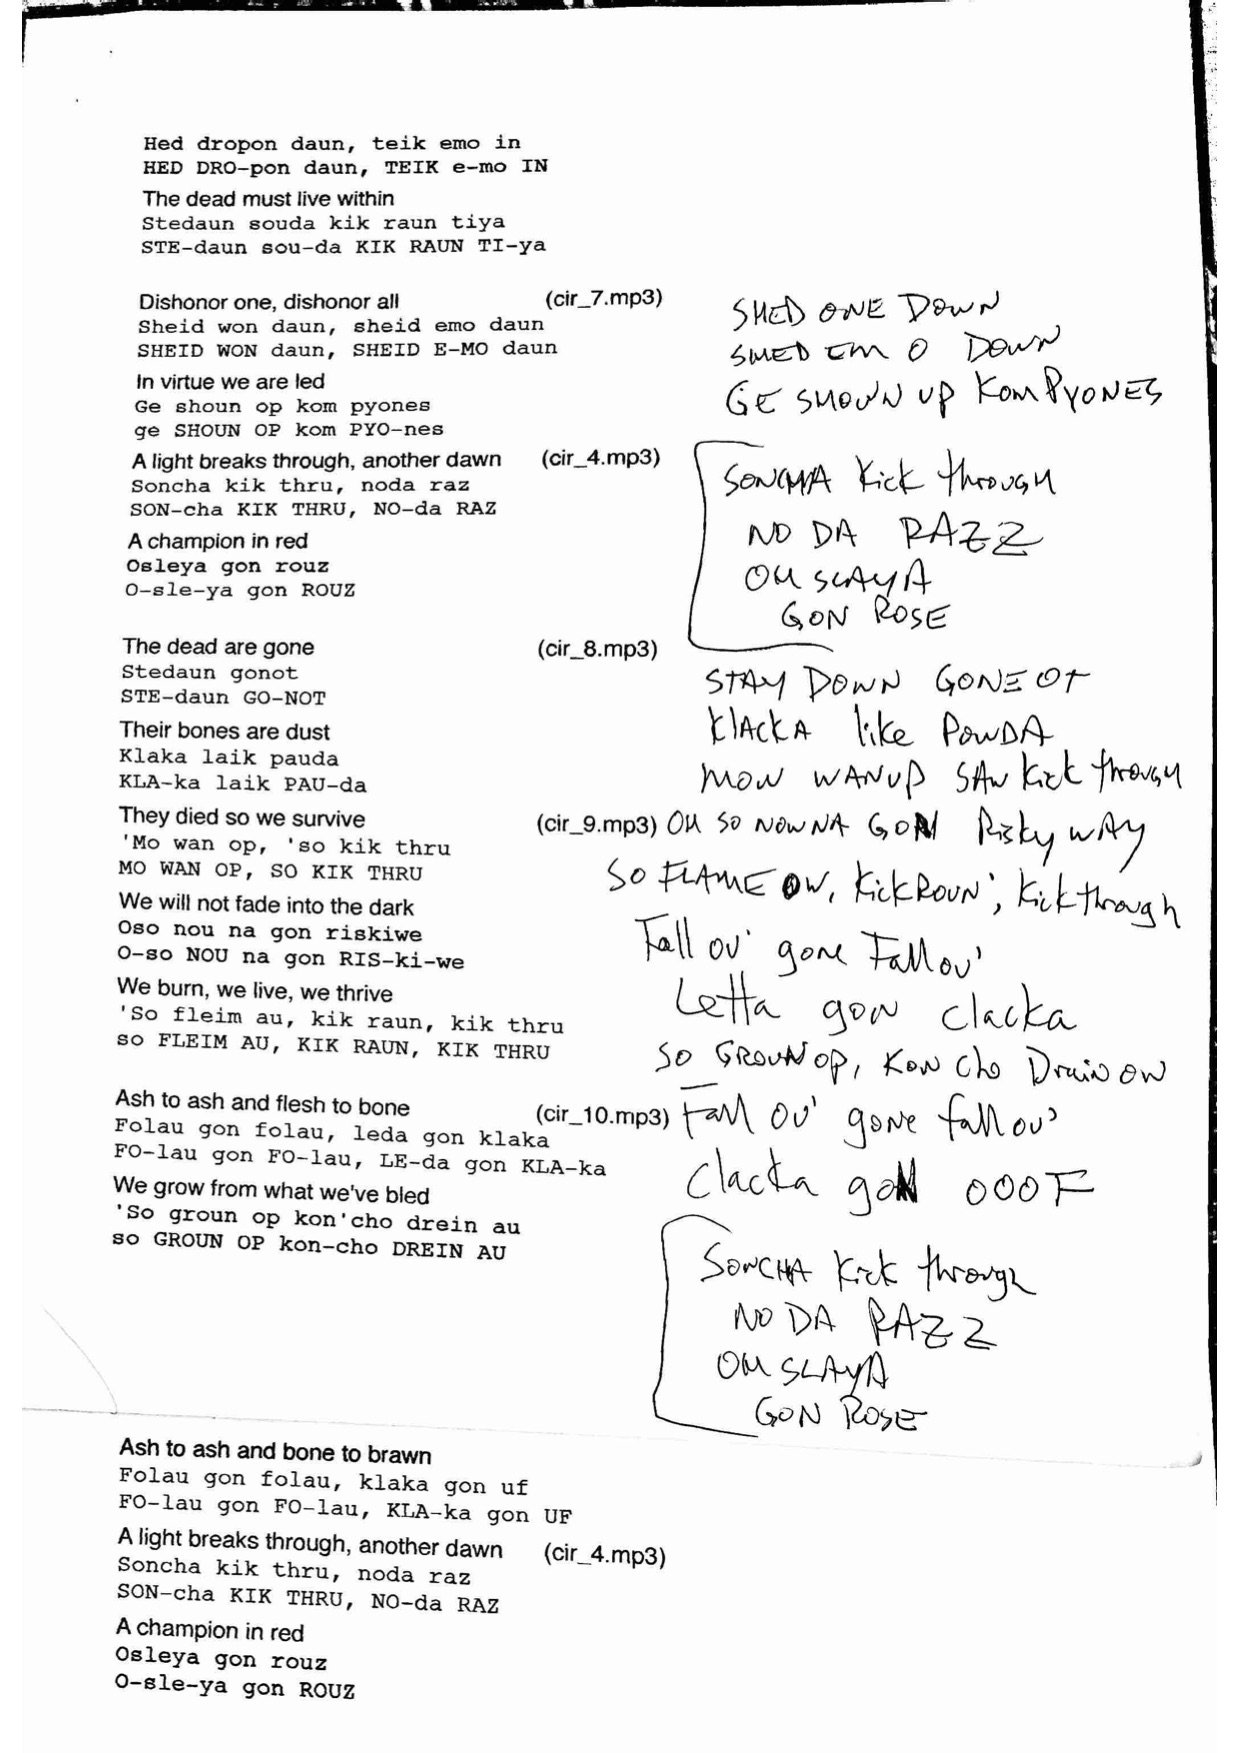 Hed dropon daun, teik emo in
HED DRO-pon daun, TEIK e-mo IN
The dead must live within
Stedaun souda kik raun tiya
STE-daun sou-da KIK RAUN TI-ya
Dishonor one, dishonor all (cir_7.mp3)
Sheid won daun, sheid emo daun
SHEID WON daun, SHEID E-MO daun
In virtue we are led
Ge shoun op kom pyones
ge SHOUN OP kom PYO-nes
A light breaks through, another dawn (cir_4.mp3)
Soncha kik thru, noda raz
SON-cha KIK THRU, NO-da RAZ
A champion in red
Osleya gon rouz
O-sle-ya gon ROUZ
The dead are gone (cir_8.mp3)
Stedaun gonot
STE-daun GO-NOT
Their bones are dust
Klaka laik pauda
KLA-ka laik PAU-da
They died so we survive (cir_9.mp3)
'Mo wan op, 'so kik thru
MO WAN OP, SO KIK THRU
We will not fade into the dark
Oso nou na gon riskiwe
O-so NOU na gon RIS-ki-we
We burn, we live, we thrive
'So fleim au, kik raun, kik thru
so FLEIM AU, KIK RAUN, KIK THRU
Ash to ash and flesh to bone (cir_10.mp3)
Folau gon folau, leda gon klaka
FO-lau gon FO-lau, LE-da gon KLA-ka
We grow from what we've bled
'So groun op kon'cho drein au
so GROUN OP kon-cho DREIN AU
Ash to ash and bone to brawn
Folau gon folau, klaka gon uf
FO-lau gon FO-lau, KLA-ka gon UF
A light breaks through, another dawn (cir_4.mp3)
Soncha kik thru, noda raz
SON-cha KIK THRU, NO-da RAZ
A champion in red
Osleya gon rouz
O-sle-ya gon ROUZ
SHED ONE DOWN
SHED EM O DOWN
GE SHOWN UP KOM PYONES
SONCHA Kick through
NO DA RAZZ
OH SLAYA
GON ROSE
STAY DOWN GONE OT
KlACKA like POWDA
MOW WANUP SAW Kick through
OH SO NOW NA GON Risky WAY
SO FLAME OW, KickROUN', Kickthrough
Fall ov' gone Fall ov'
Letta gon clacka
SO GROUN OP, KON Cho Drain OW
Fall OV' gone fall ov'
Clacka goN OOOF
SONCHA Kick through
NO DA RAZZ
OH SLAYA
GON ROSE